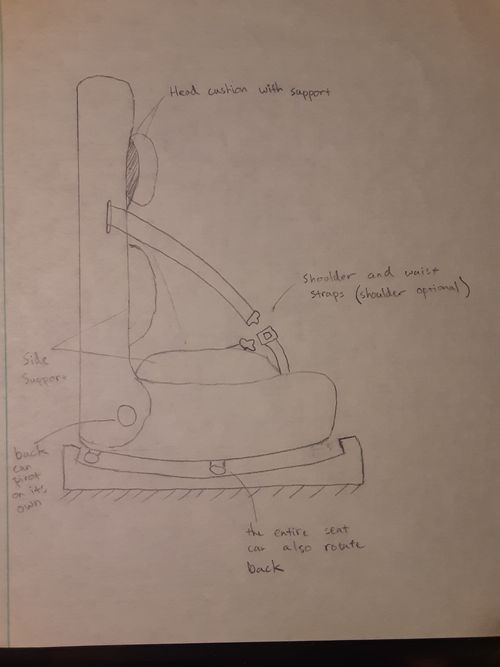 Head cushion with support
Shoulder and waist
straps (shoulder optional)
Side
Support
back
can
pivot
on its
own
the entire seat
can also rotate
back